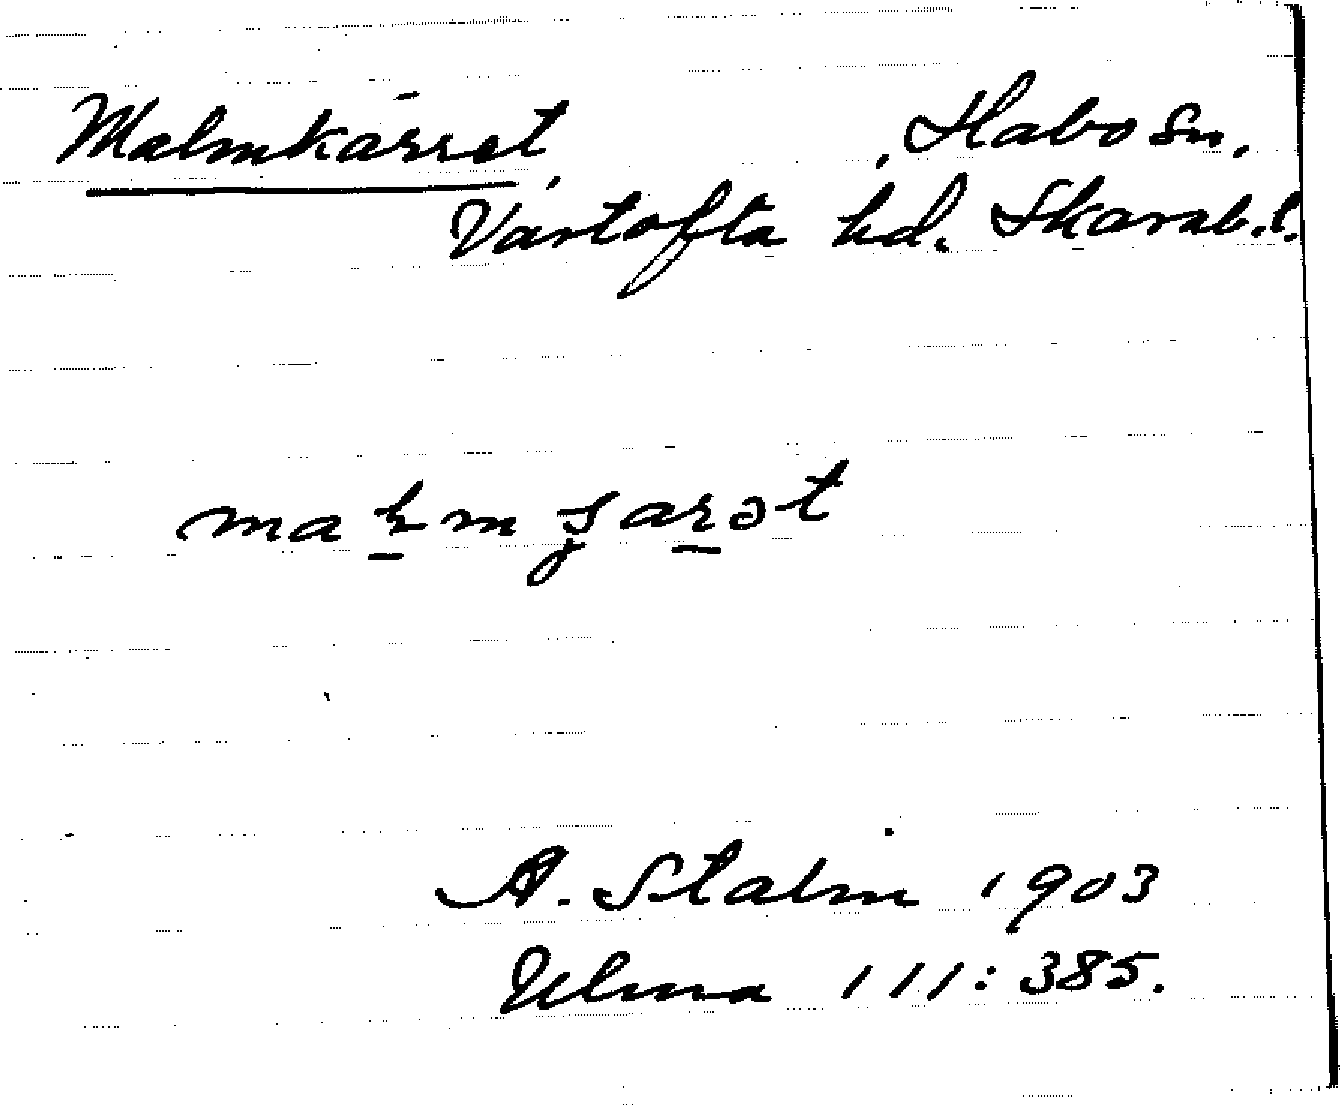 Malmkärret, Habo sn,
Vartofta hd. Skarab.l.
A. Stalin 1903
Ulma 111:385.